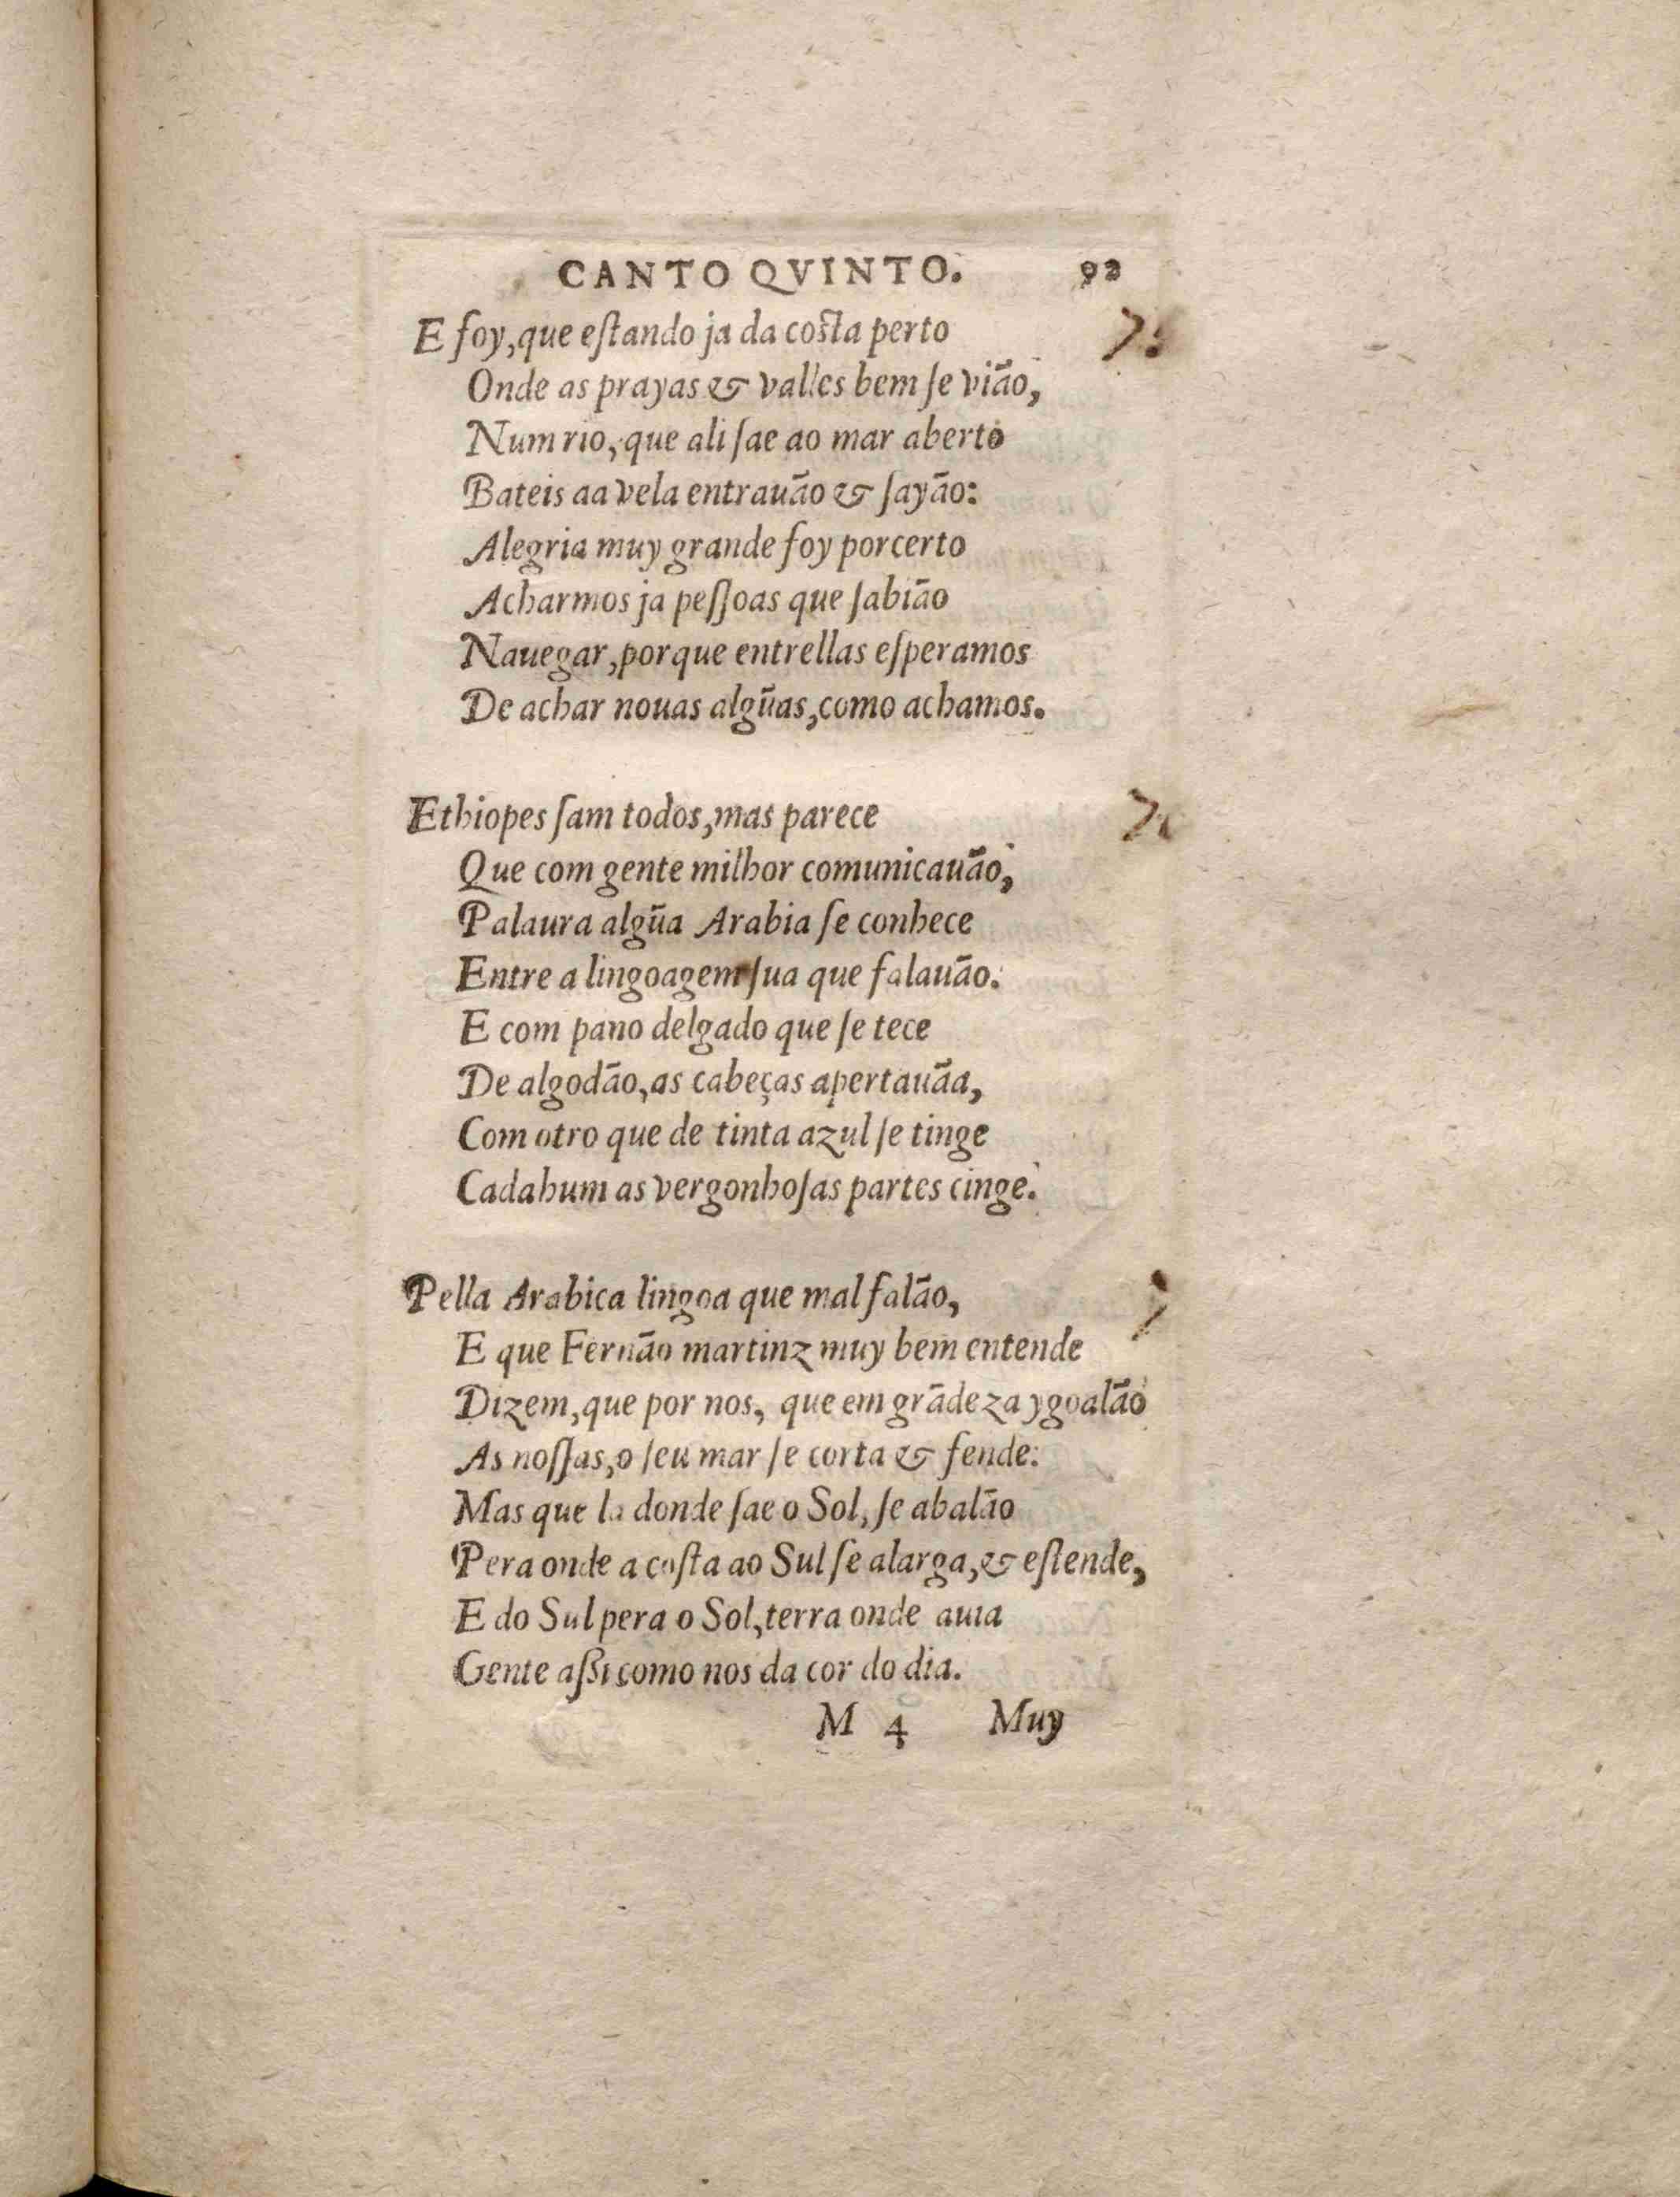 CANTO QVINTO. 92
E foy, que eſtando ja da coſta perto
Onde as prayas & valles bem ſe vião,
Num rio, que ali ſae ao mar aberto
Bateis aa vela entrauão & ſayão:
Alegria muy grande foy porcerto
Acharmos ja peſſoas que ſabião
Nauegar, porque entrellas eſperamos
De achar nouas algũas, como achamos.
Ethiopes ſam todos, mas parece
Que com gente milhor comunicauão,
Palaura algũa Arabia ſe conhece
Entre a lingoagem ſua que falauão:
E com pano delgado que ſe tece
De algodão, as cabeças apertauãa,
Com otro que de tinta azul ſe tinge
Cadahum as vergonhoſas partes cinge.
Pella Arabica lingoa que mal falão,
E que Fernão martinz muy bem entende
Dizem, que por nos, que em grãdeza ygoalão
As noſſas, o ſeu mar ſe corta & fende:
Mas que la donde ſae o Sol, ſe abalão
Pera onde a coſta ao Sul ſe alarga, & eſtende,
E do Sul pera o Sol, terra onde auia
Gente aßi como nos da cor do dia.
M 4 Muy